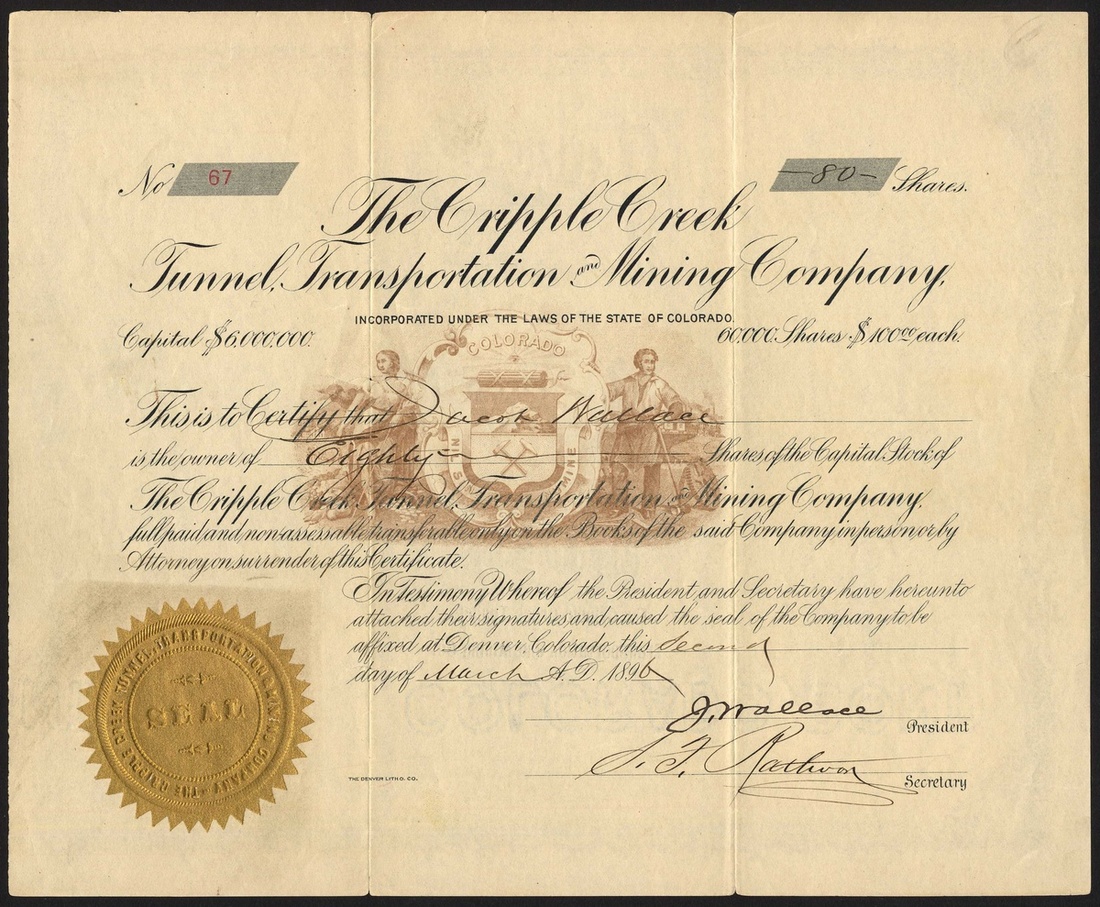 No 67
—80— Shares.
The Cripple Creek
Tunnel, Transportation and Mining Company,
INCORPORATED UNDER THE LAWS OF THE STATE OF COLORADO.
Capital $6,000,000.
60,000 Shares $100.00 each.
COLORADO
MINE
This is to Certify that Jacob Wallace
is the owner of Eighty Shares of the Capital Stock of
The Cripple Creek Tunnel, Transportation and Mining Company,
full paid and non-assessable transferable only on the Books of the said Company in person or by
Attorney on surrender of this Certificate.
In Testimony Whereof the President and Secretary have hereunto
attached their signatures and caused the seal of the Company to be
affixed at Denver, Colorado, this Second
day of March A.D. 1896
J. Wallace
President
Secretary
THE DENVER LITHO. CO.
THE CRIPPLE CREEK TUNNEL, TRANSPORTATION & MINING COMPANY
SEAL